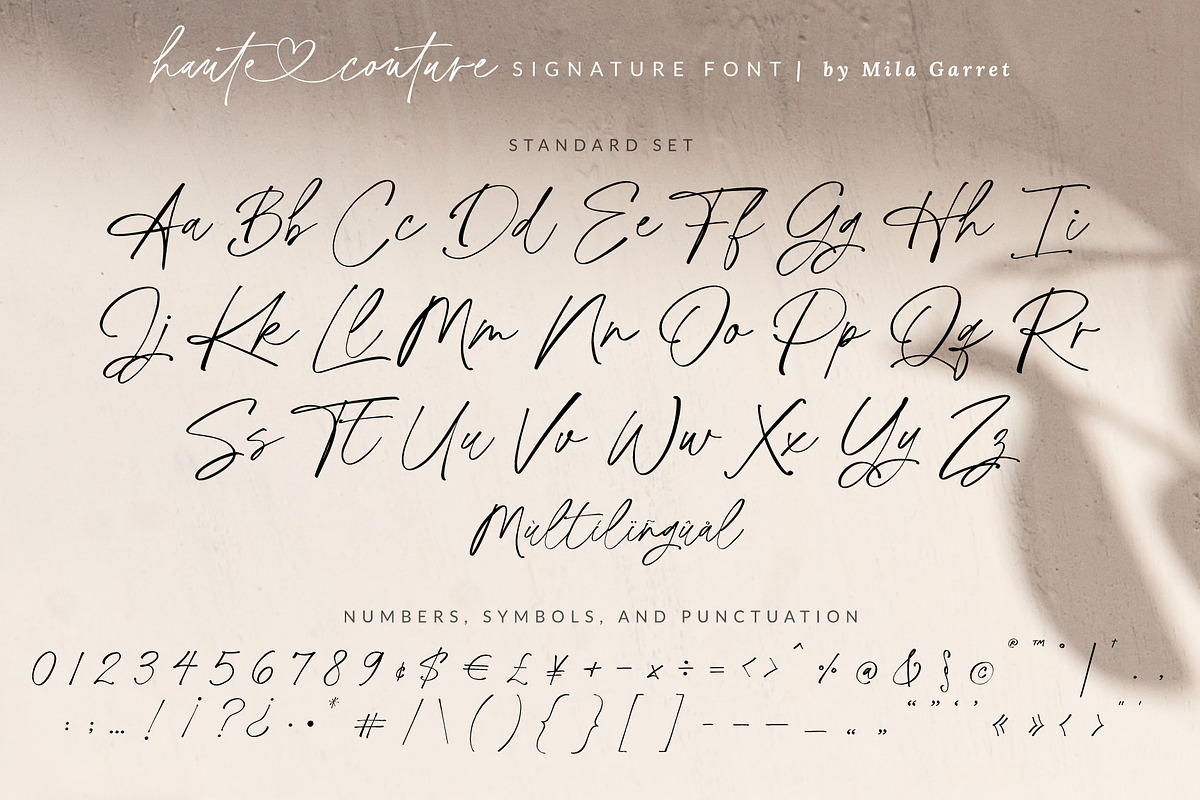 haute couture SIGNATURE FONT | by Mila Garret
STANDARD SET
Aa Bb Cc Dd Ee Ff Gg Hh Ii
Jj Kk Ll Mm Nn Oo Pp Qq Rr
Ss Tt Uu Vv Ww Xx Yy Zz
Mùltílïñgûål
NUMBERS, SYMBOLS, AND PUNCTUATION
0 1 2 3 4 5 6 7 8 9 ¢ $ € £ ¥ + − × ÷ = < > ^ % @ & § © ® ™ ° | † . ,
: ; … ! ¡ ? ¿ · • * # / \ ( ) { } [ ] - – — _ “ ” “ ” ‘ ’ « » ‹ › " '